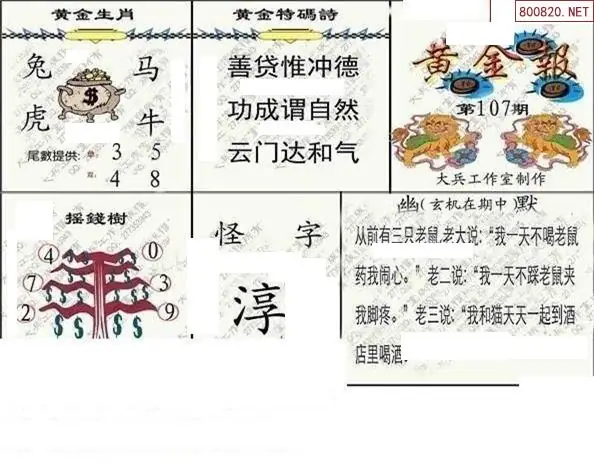 800820.NET
黄金生肖
兔 马
虎 牛
$
尾數提供: 单: 3 5
双: 4 8
黄金特碼詩
善贷惟冲德
功成谓自然
云门达和气
黄金報
第107期
大兵工作室制作
摇錢樹
4 0
7 3
2 9
$ $ $ $ $ $
怪 字
淳
幽(玄机在期中)默
从前有三只老鼠,老大说:“我一天不喝老鼠
药我闹心。”老二说:“我一天不踩老鼠夹
我脚疼。”老三说:“我和猫天天一起到酒
店里喝酒